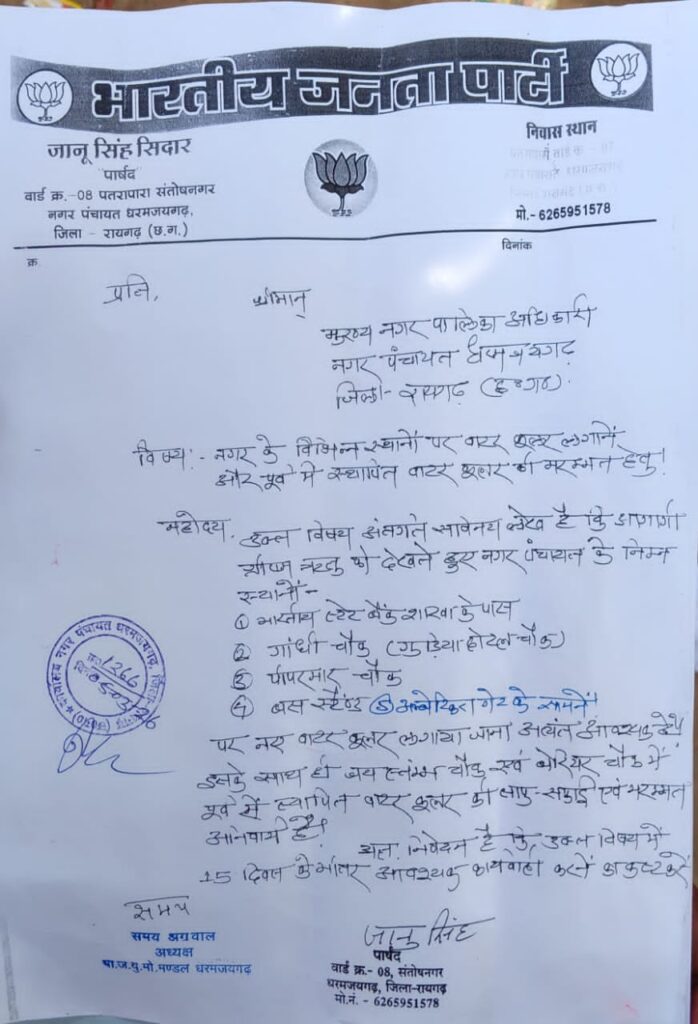 भारतीय जनता पार्टी
जानू सिंह सिदार
"पार्षद"
वार्ड क्र.-08 पतरापारा संतोषनगर
नगर पंचायत धरमजयगढ़,
जिला - रायगढ़ (छ.ग.)
निवास स्थान
मो.- 6265951578
क्र.
दिनांक
प्रति,
श्रीमान्
मुख्य नगर पालिका अधिकारी
नगर पंचायत धरमजयगढ़
जिला- रायगढ़ (छ०ग०).
विषय:- नगर के विभिन्न स्थानों पर वाटर कूलर लगाने
और पूर्व में स्थापित वाटर कूलर की मरम्मत हेतु।
महोदय,
उक्त विषय अंतर्गत सविनय लेख है कि आगामी
ग्रीष्म ऋतु को देखते हुए नगर पंचायत के निम्न
स्थानों-
① भारतीय स्टेट बैंक शाखा के पास
② गांधी चौक (गुड़िया होटल चौक)
③ पीपरमार चौक
④ बस स्टैण्ड ⑤ के सामने
पर नए वाटर कूलर लगाया जाना अत्यंत आवश्यक है
इसके साथ ही जय स्तंम्भ चौक एवं चौक में
पूर्व में स्थापित वाटर कूलर की साफ-सफाई एवं मरम्मत
अनिवार्य है।
अतः निवेदन है कि, उक्त विषय में
15 दिवस के भीतर आवश्यक कार्यवाही करने का कष्ट करें
कार्यालय नगर पंचायत धरमजयगढ़,
1266
समय
समय अग्रवाल
अध्यक्ष
भा.ज.यु.मो.मण्डल धरमजयगढ़
जानु सिंह
पार्षद
वार्ड क्र.- 08, संतोषनगर
धरमजयगढ़, जिला-रायगढ़
मो.नं. - 6265951578